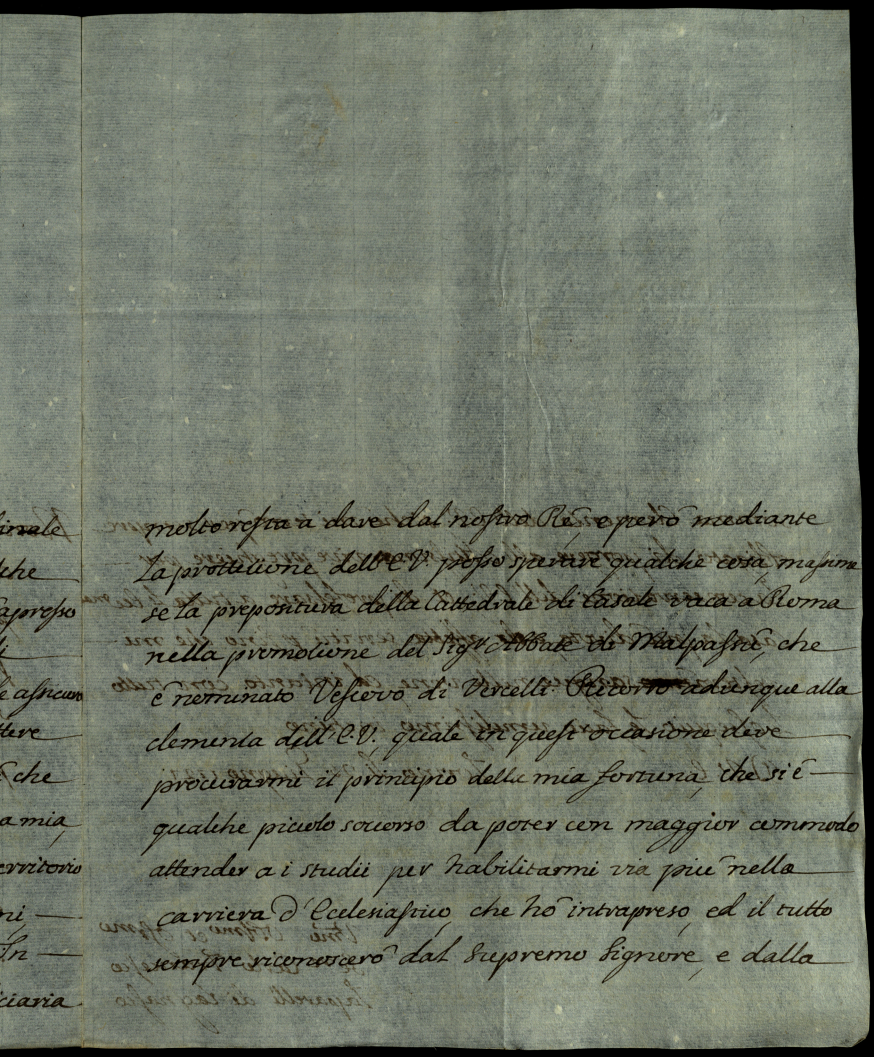 linale
che
apresso
li
e assicuro
ttere
che
a mia,
erritorio
ni, —
In —
ciaria
molto resta à dare dal nostro Rè, e però mediante
La protetione dell'E.V. posso sperare qualche cosa, massime
se la prepositura della Cattedrale di Casale vaca a Roma
nella promotione del Sig.r Abbate di Malpassu, che
è nominato Vescovo di Vercelli. Ricorro adunque alla
clemenza dell'E.V., quale in quest'occasione deve
procurarmi il principio della mia fortuna, che si è —
qualche picciolo socorso da poter con maggior commodo
attender a i studii per habilitarmi via più nella
carriera d'Ecclesiastico, che hò intrapreso, ed il tutto
sempre riconoscerò dal Supremo Signore, e dalla